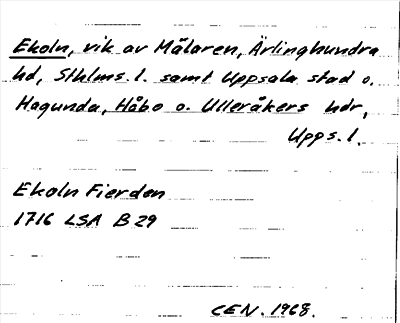 Ekoln, vik av Mälaren, Ärlinghundra
hd, Sthlms. l. samt Uppsala stad o.
Hagunda, Håbo o. Ulleråkers hdr,
Upps. l.
Ekoln Fierden
1716 LSA B 29
CEN. 1968.